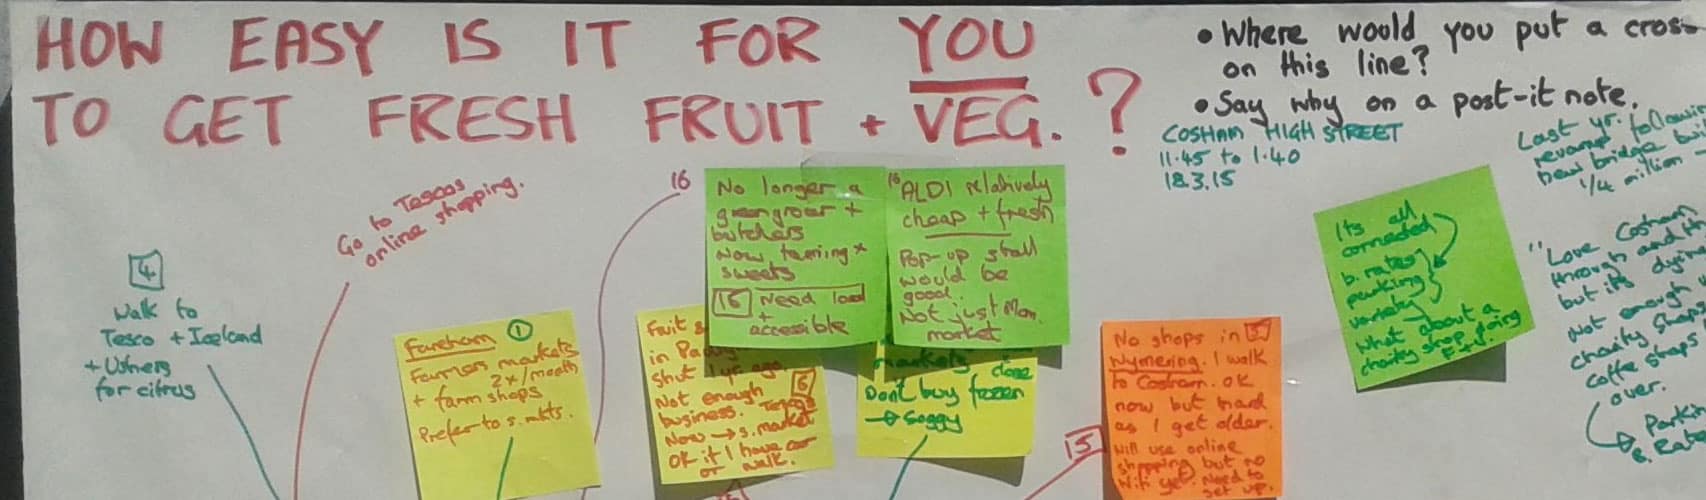 HOW EASY IS IT FOR YOU
TO GET FRESH FRUIT + VEG. ?
• Where would you put a cross
on this line?
• Say why on a post-it note.
COSHAM HIGH STREET
11.45 to 1.40
18.3.15
Last yr.
revamp following
new bridge
1/4 million -
Go to Tescos
online shopping.
4
Walk to
Tesco + Iceland
+ Ushers
for citrus
Fareham 1
Farmers markets
2x/month
+ farm shops
Prefer to s.mkts.
16
No longer a
greengrocer +
butchers
Now tanning +
sweets
16 Need local
+
accessible
16
ALDI relatively
cheap + fresh
Pop-up stall
would be
good.
Not just Mon.
market
Fruit &
in
shut 1 yr ago.
Not enough 6
business. Tescos
Now → s.market
OK if I have car
or walk.
markets close
Don't buy frozen
→ Soggy
No shops in 5
Wymering. I walk
to Cosham. OK
now but hard
as I get older.
will use online
shopping but no
wifi yet. Need to
set up.
15
Its all
connected
b. rates
parking
variety
What about a
charity shop doing
F + V.
"Love Cosham
through and
but its dying
Not enough
charity shops
coffe shops
over.
→ Parki
B. Rate